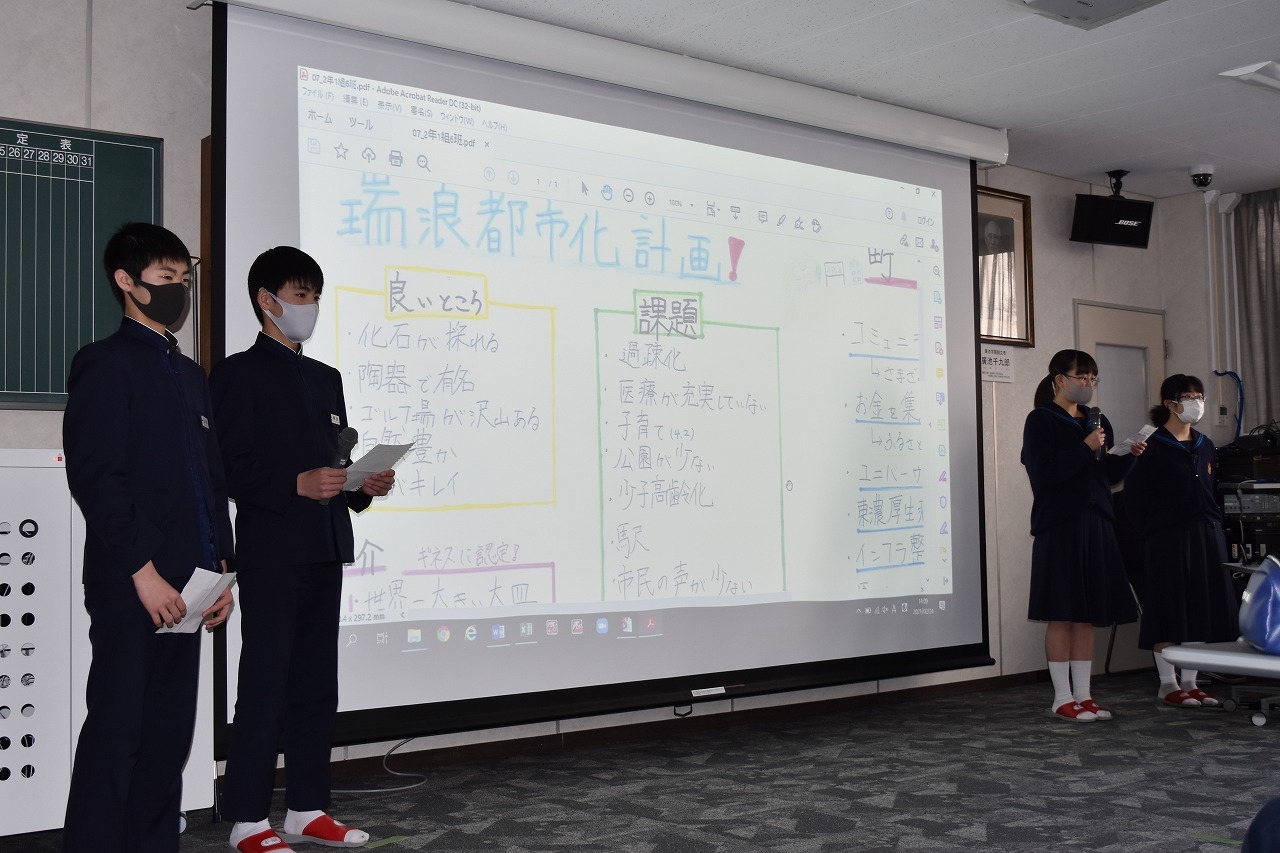 定表
5 26 27 28 29 30 31
07_2年1組6班.pdf - Adobe Acrobat Reader DC (32-bit)
ファイル(F) 編集(E) 表示(V) 署名(S) ウィンドウ(W) ヘルプ(H)
ホーム ツール
07_2年1組6班.pdf ×
1 / 1
100%
ログイン
瑞浪都市化計画!
町
良いところ
・化石が採れる
・陶器で有名
・ゴルフ場が沢山ある
自然豊か
キレイ
介
ギネスに認定!
・世界一大きい大皿
課題
・過疎化
・医療が充実していない
・子育て(4.2)
・公園が少ない
・少子高齢化
・駅沢
・市民の声が少ない
・コミュニ
↳さまざ
・お金を集
↳ふるさと
・ユニバーサ
・東濃厚生
・インフラ整
BOSE
廣池千九郎